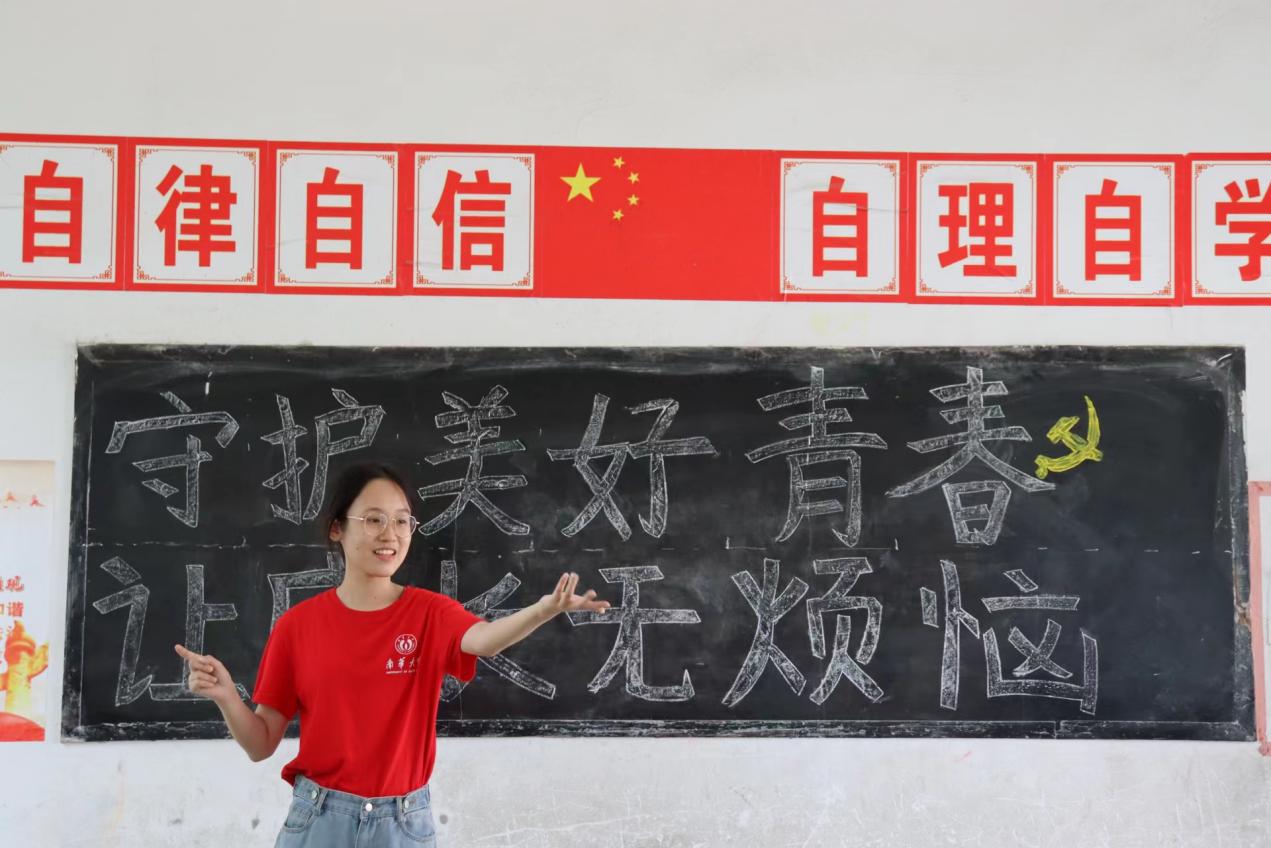 自律自信 自理自学
守护美好青春
让成长无烦恼
南华大学